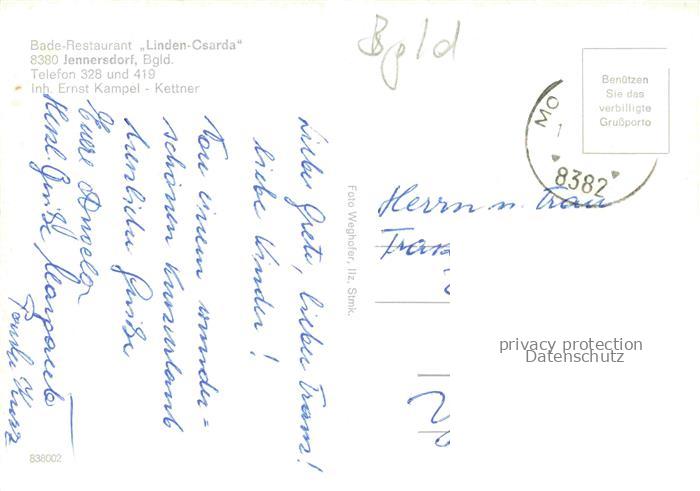 Bade-Restaurant „Linden-Csarda"
8380 Jennersdorf, Bgld.
Telefon 328 und 419
Inh. Ernst Kampel - Kettner
Bgld
Benützen
Sie das
verbilligte
Grußporto
MO
1
8382
Liebe Greti, lieber Franz!
liebe Kinder!
Von einem wunder=
schönen Kurzurlaub
herzliche Grüße
Eure Angela
Herzl. Grüße, Margarete
Foto Weghofer, Ilz, Stmk.
Herrn u. Frau
privacy protection
Datenschutz
838002